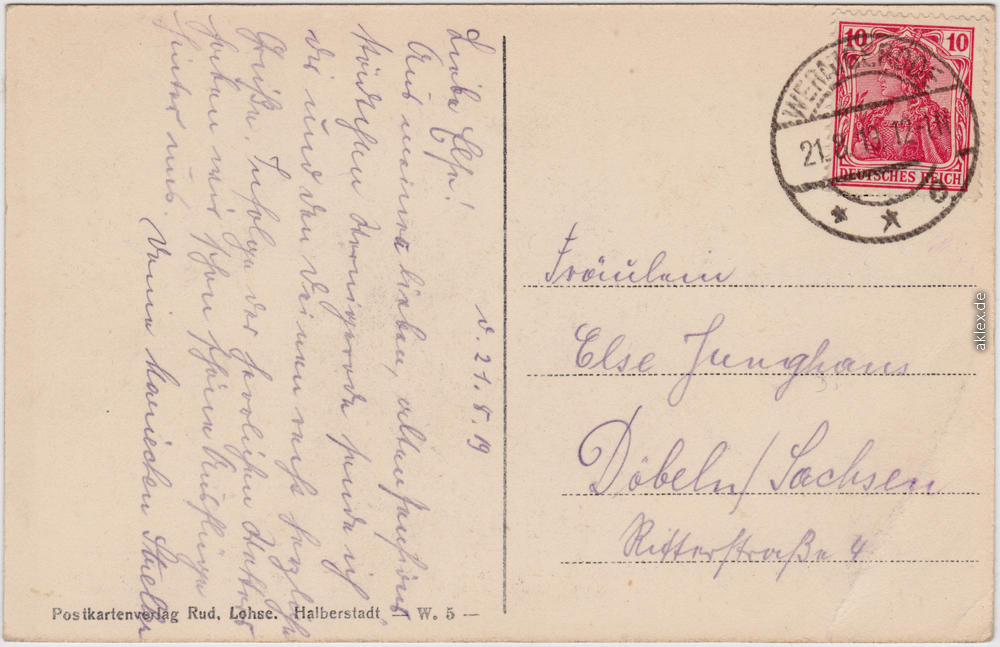 Liebe Else!
d. 21.8.19
Aus meiner lieben, alten, schönen
Städtchen Wernigerode sende ich
dir und den Deinen recht herzliche
Grüße. Infolge der herrlichen
haben wir schon schöne Ausflüge
hinter uns.
Dein Mariechen
Fräulein
Else Junghans
Döbeln/Sachsen
Ritterstraße 4
10 10
DEUTSCHES REICH
21.8.19.12-1N
* * c
Postkartenverlag Rud. Lohse. Halberstadt — W. 5 —
aklex.de